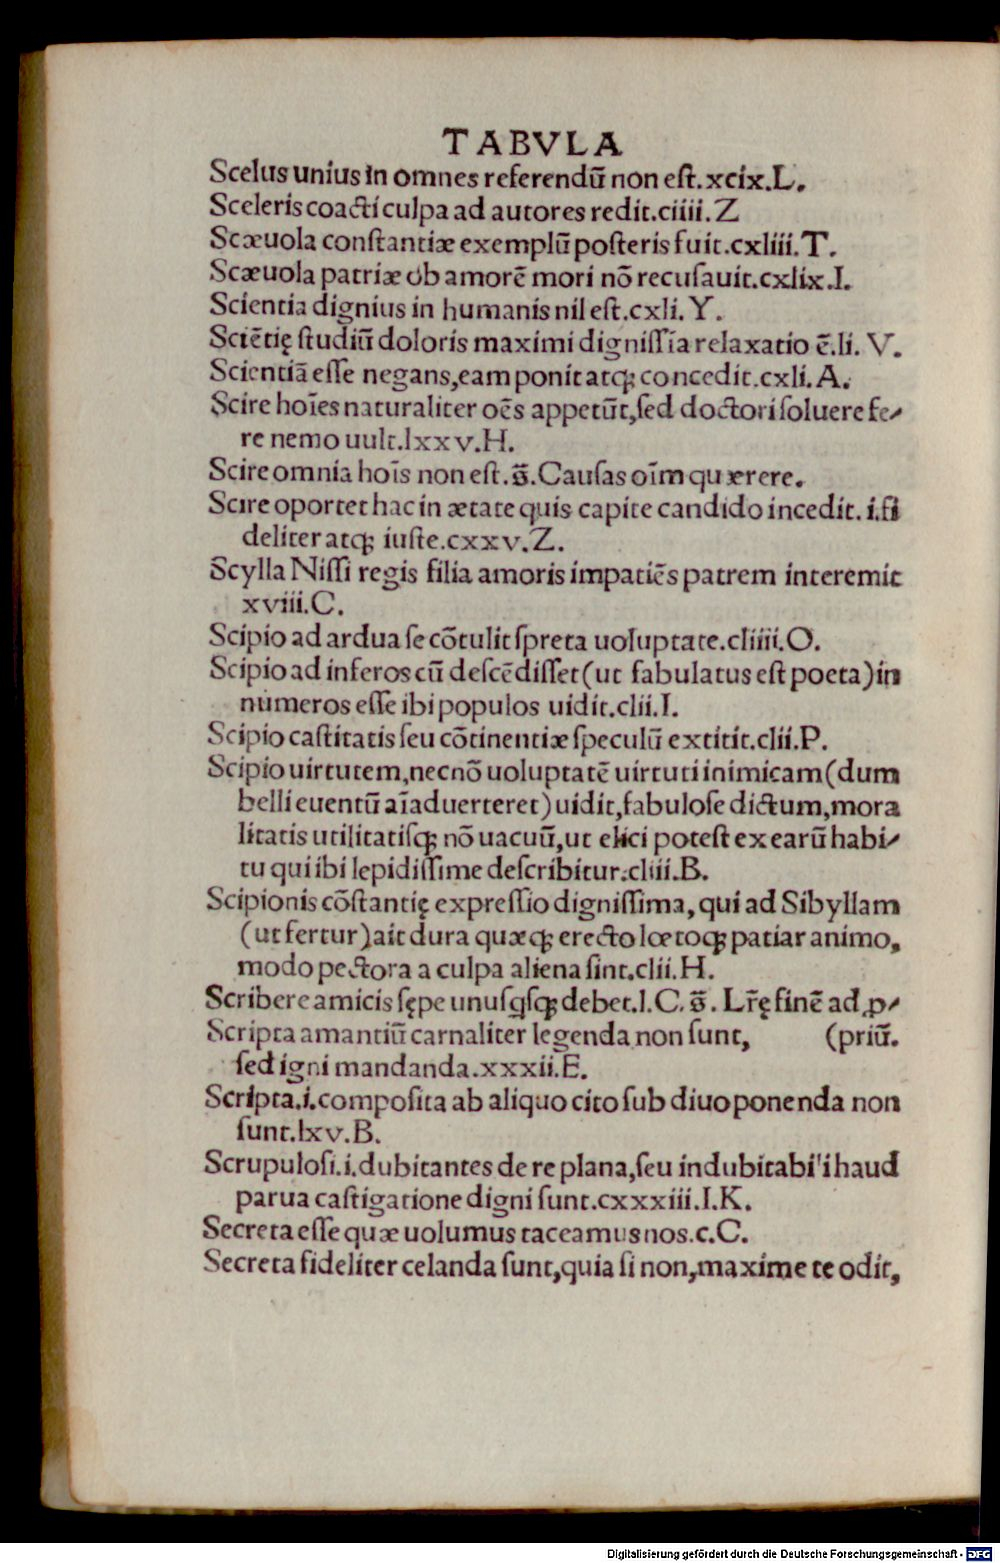 TABVLA
Scelus unius in omnes referendũ non eſt.xcix.L.
Sceleris coacti culpa ad autores redit.ciiii.Z
Scæuola conſtantiæ exemplũ poſteris fuit.cxliii.T.
Scæuola patriæ ob amorẽ mori nõ recuſauit.cxlix.I.
Scientia dignius in humanis nil eſt.cxli.Y.
Sciẽtię ſtudiũ doloris maximi digniſſĩa relaxatio ẽ.li.V.
Scientiã eſſe negans,eam ponit atq; concedit.cxli.A.
Scire hoĩes naturaliter oẽs appetũt,ſed doctori ſoluere fe-
re nemo uult.lxxv.H.
Scire omnia hoĩs non eſt.s̃.Cauſas oĩm quærere.
Scire oportet hac in ætate quis capite candido incedit.i.fi
deliter atq; iuſte.cxxv.Z.
Scylla Niſſi regis filia amoris impatiẽs patrem interemit
xviii.C.
Scipio ad ardua ſe cõtulit ſpreta uoluptate.cliiii.O.
Scipio ad inferos cũ deſcẽdiſſet(ut fabulatus eſt poeta)in
numeros eſſe ibi populos uidit.clii.I.
Scipio caſtitatis ſeu cõtinentiæ ſpeculũ extitit.clii.P.
Scipio uirtutem,necnõ uoluptatẽ uirtuti inimicam(dum
belli euentũ aĩaduerteret)uidit,fabuloſe dictum,mora
litatis utilitatiſq; nõ uacuũ,ut elici poteſt ex earũ habi-
tu qui ibi lepidiſſime deſcribitur.cliii.B.
Scipionis cõſtantię expreſſio digniſſima,qui ad Sibyllam
(ut fertur)ait dura quæq; erecto lœtoq; patiar animo,
modo pectora a culpa aliena ſint.clii.H.
Scribere amicis ſępe unuſqſq; debet.l.C.s̃.Lr̃ę finẽ ad ꝓ-
Scripta amantiũ carnaliter legenda non ſunt, (priũ.
ſed igni mandanda.xxxii.E.
Scripta.i.compoſita ab aliquo cito ſub diuo ponenda non
ſunt.lxv.B.
Scrupuloſi.i.dubitantes de re plana,ſeu indubitabili haud
parua caſtigatione digni ſunt.cxxxiii.I.K.
Secreta eſſe quæ uolumus taceamus nos.c.C.
Secreta fideliter celanda ſunt,quia ſi non,maxime te odit,
Digitalisierung gefördert durch die Deutsche Forschungsgemeinschaft - DFG